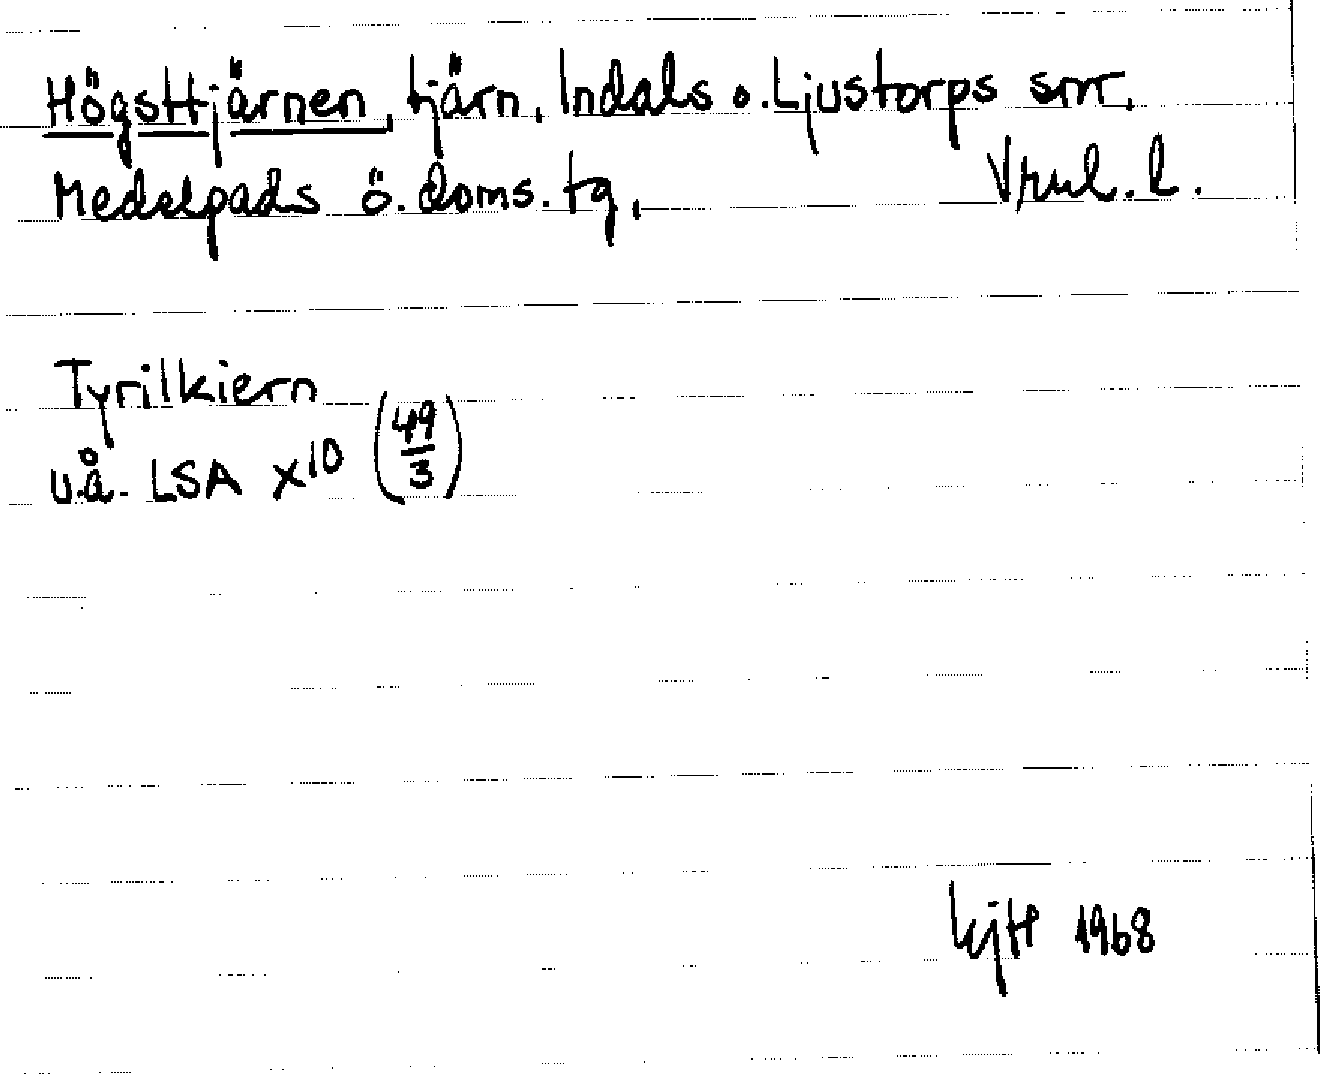 Högsttjärnen, tjärn, Indals o. Ljustorps snr,
Medelpads ö. doms. tg, Vrnl. l.
Tyrilkiern
u.å. LSA X¹⁰ (49/3)
1968